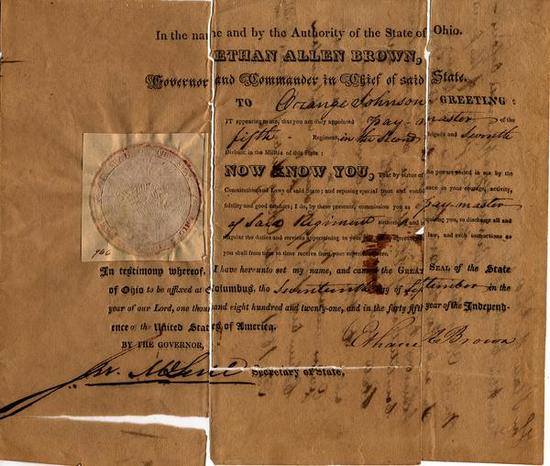 In the name and by the Authority of the State of Ohio.
ETHAN ALLEN BROWN,
Governor and Commander in Chief of said State.
TO Orange Johnson GREETING:
IT appearing to me, that you are duly appointed pay-master of the
fifth Regiment, in the Second Brigade and Seventh
Division in the Militia of this State:
NOW KNOW YOU, That by virtue of the power vested in me by the
Constitution and Laws of said State; and reposing special trust and confidence in your courage, activity,
fidelity and good conduct; I do, by these presents, commission you as pay-master
of Said Regiment authorizing and requiring you, to discharge all and
singular the duties and services appertaining to your
you shall from time to time receive from your superior
In testimony whereof, I have hereunto set my name, and caused the GREAT SEAL of the State
of Ohio to be affixed at Columbus, the seventeenth day of September in the
year of our Lord, one thousand eight hundred and twenty-one, and in the forty fifth year of the Independ-
ence of the United States of America.
BY THE GOVERNOR, Ethan A Brown
Secretary of State.